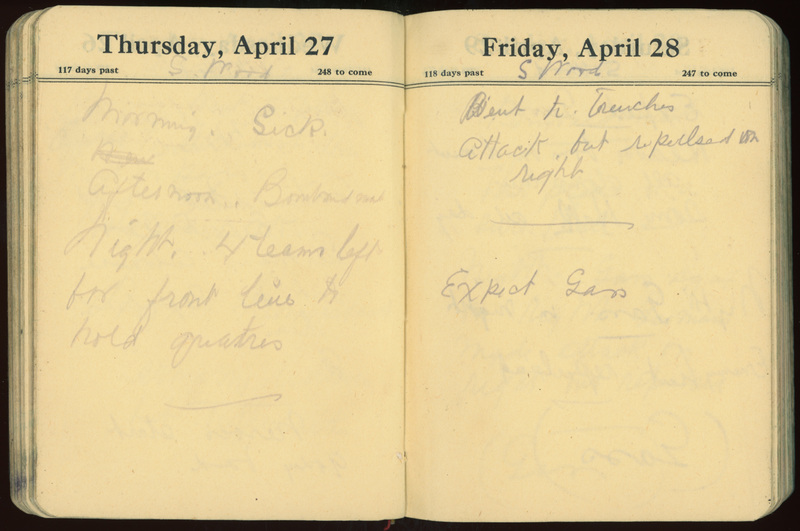 Thursday, April 27
117 days past
248 to come
S. Wood
Morning. Sick.
Afternoon.. Bombard
Night. 4 teams left
for front line to
hold
Friday, April 28
118 days past
247 to come
S Wood
Went to Trenches
Attack but repellsed on
right
Expect Gass